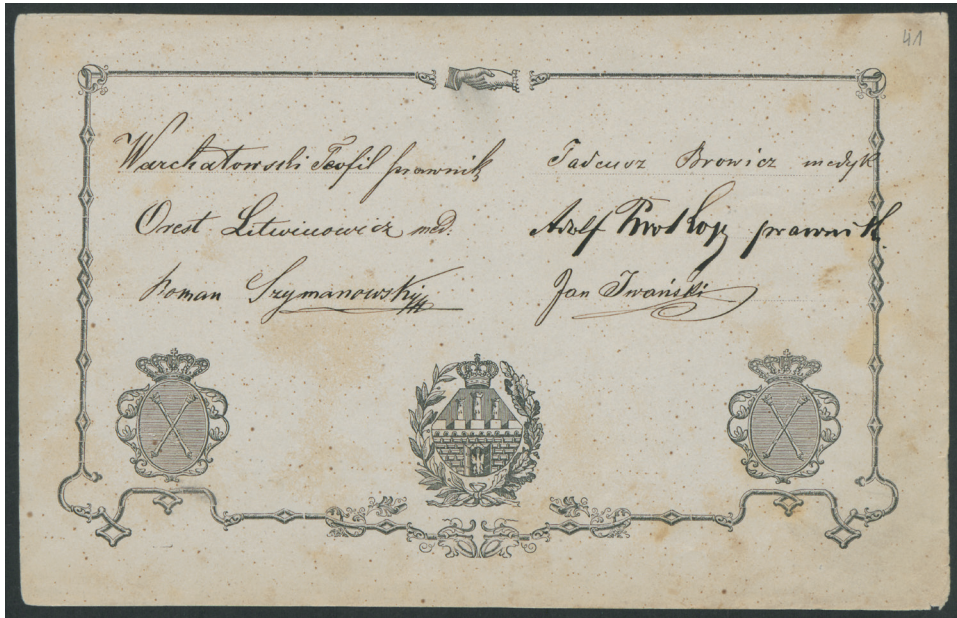 41
Warchałowski Teofil prawnik
Orest Litwinowicz med.
Roman Szymanowski
Tadeusz Browicz medyk
Adolf prawnik.
Jan Iwański